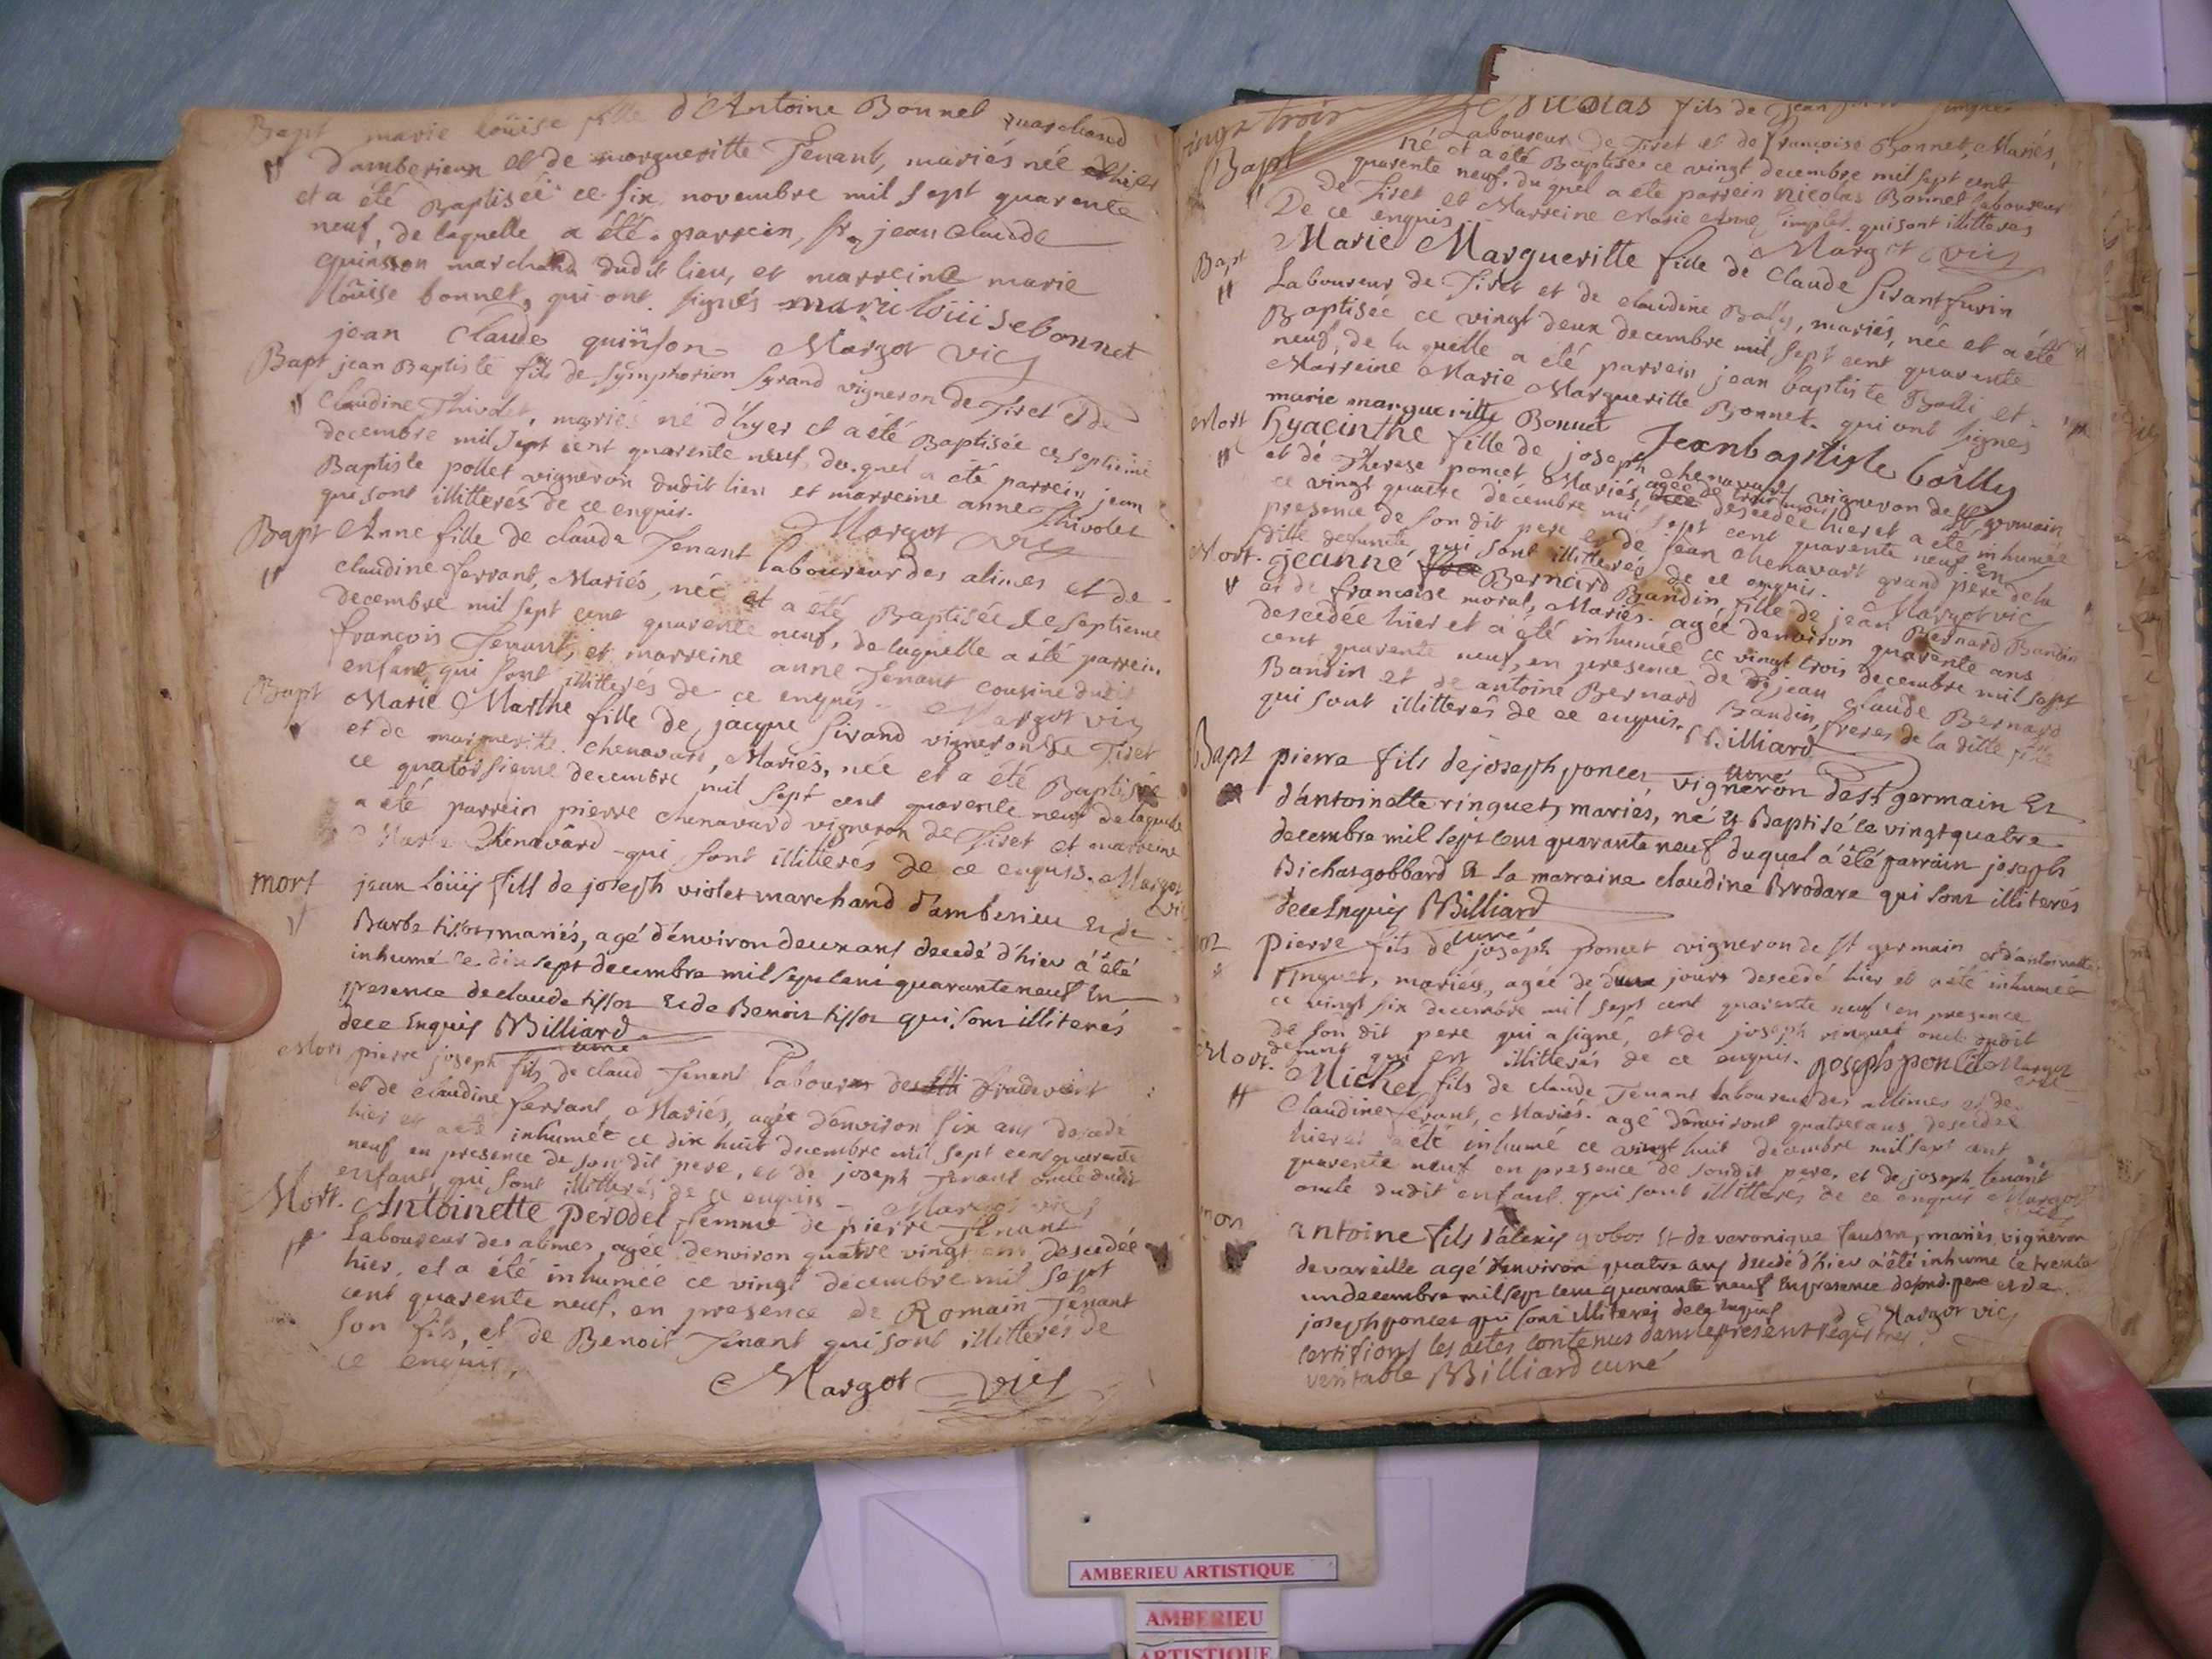 Bapt marie loüise fille d'Antoine Bonnel marchand
d'amberieux et de margueritte Tenant, mariés née
et a été Baptiseé ce six novembre mil sept quarente
neuf, de laquelle a été parrein, sr jean claude
quinson marchand dudit lieu, et marreine marie
loüise bonnet, qui ont signés marie loüise bonnet
jean claude quinson Margot vic
Bapt jean Baptiste fils de symphorien syrand vigneron de Tiret et de
claudine Thivolet, mariés né d'hyer et a été Baptisée ce septieme
decembre mil sept cent quarente neuf, du quel a été parrein jean
Baptiste pollet vigneron dudit lieu et marreine anne Thivolet
qui sont illitterés de ce enquis. Margot vic
Bapt Anne fille de claude Tenant laboureur des alimes et de
claudine ferrant, Mariés, née et a été Baptisée le septieme
decembre mil sept cent quarente neuf, de laquelle a été parrein
françois Tenant, et marreine anne Tenant cousine dudit
enfant, qui sont illitterés de ce enquis. Margot vic
Bapt Marie Marthe fille de jacque sirand vigneron de Tiret
et de margueritte chenavard, Mariés, née et a été Baptisée
ce quatorsieme decembre mil sept cent quarente neuf de laquelle
a été parrein pierre chenavard vigneron de Tiret et marreine
Marie Chenavard qui sont illitterés de ce enquis. Margot
vic
mort jean loüis fils de joseph violet marchand d'amberieu et de
Barbe tissot, mariés, agé d'environ deux ans decedé d'hier a été
inhumé le dix sept decembre mil sept cent quarante neuf en
presence de claude tissot et de Benoit tissot qui sont illiterés
de ce Enquis Billiard
curé
Mort pierre joseph fils de claud Tenant laboureur des
et de claudine ferrant, Mariés, agée d'environ six ans decedé
hier et a été inhumée ce dix huit decembre mil sept cent quarente
neuf en presence de son dit pere, et de joseph Tenant oncle dudit
enfant, qui sont illitterés de ce enquis Margot vic
Mort. Antoinette perodet femme de pierre Tenant
Laboureur des alimes, agée d'environ quatre vingt ans descedée
hier, et a été inhumée ce vingt decembre mil sept
cent quarente neuf, en presence de Romain Tenant
son fils, et de Benoit Tenant qui sont illitterés de
ce enquis,
Margot vic
vingt trois nicolas fils de jean
Bapt Laboureur de Tiret et de françoise Bonnet, Mariés,
né et a été Baptisée ce vingt decembre mil sept cent
quarente neuf. du quel a été parrein nicolas Bonnet laboureur
de Tiret et Marreine Marie Anne simplet. qui sont illitteres
De ce enquis Margot vic
Bapt Marie Margueritte fille de claude sirant furin
Laboureur de Tiret et de claudine Bally, mariés, née et a été
Baptisée ce vingt deux decembre mil sept cent quarente
neuf, de la quelle a été parrein jean baptiste Balli et
Marreine Marie Margueritte Bonnet. qui ont signés
marie margueritte Bonnet Jean baptiste bailly
Mort hyacinthe fille de joseph chenavard vigneron de st germain
et de Therese poncet Mariés, agée de trois mois descedée hier et a été inhumée
ce vingt quatre decembre mil sept cent quarente neuf En
presence de son dit pere et de jean chenavart grand pere de la
ditte defunte qui sont illitterés de ce enquis. Margot vic
Mort. jeanne Bernard Bandin, fille de jean Bernard Bandin
et de françoise moral, Mariés. agée denviron quarente ans
descedée hier et a été inhumée ce vingt trois decembre mil sept
cent quarente neuf, en presence de jean claude Bernard
Bandin et de antoine Bernard Bandin, freres de la ditte
qui sont illitterés de ce enquis. Billiard
curé
Bapt pierre fils de joseph poncet vigneron de st germain Et
d'antoinette ringuet, mariés, né et Baptisé le vingt quatre
decembre mil sept cent quarante neuf duquel a été parrain joseph
Bichat gobbard Et la marraine claudine Brodare qui sont illiterés
de ce Enquis Billiard
curé
mort pierre fils de joseph poncet vigneron de st germain et d'antoinette
ringuet, mariés, agée de deux jours descedé hier et a été inhumée
ce vingt six decembre mil sept cent quarente neuf en presence
de son dit pere qui a signé, et de joseph ringuet oncle dudit
defunt qui est illitterés de ce enquis. joseph poncet Margot
Mort. Michel fils de claude Tenant laboureur des allimes et de
claudine ferant, Mariés. agé denviront quatre ans descedée
hier et a été inhumé ce vingt huit decembre mil sept cent
quarente neuf en presence de sondit pere, et de joseph tenant
oncle dudit enfant. qui sont illitterés de ce enquis Margot
vic
mort antoine fils d'alexis gobos Et de veronique, mariés, vigneron
de vareille agé d'environ quatre ans decedé d'hier a été inhumé le trente
un decembre mil sept cent quarante neuf En presence de sond. pere et de
joseph poncet qui sont illiterés de ce Enquis Margot vic
certifions les actes contenus dans le present registre
veritable Billiard curé
AMBERIEU ARTISTIQUE
AMBERIEU
ARTISTIQUE